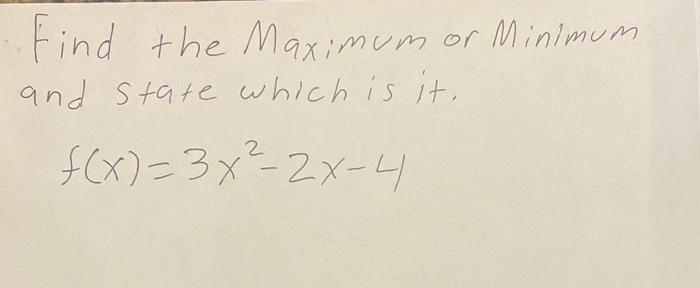 Find the Maximum or Minimum
and state which is it.
f(x)=3x²-2x-4